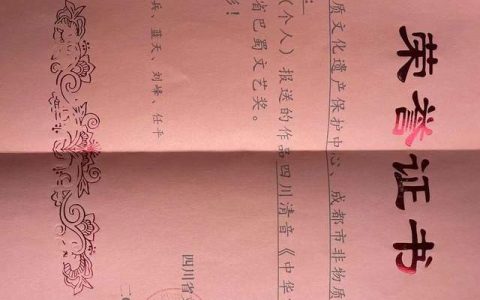 荣誉证书
质文化遗产保护中心、成都市非物质
:
(个人)报送的作品四川清音《中华
省巴蜀文艺奖。
!
四川省
兵、蓝天、刘峰、任平
二〇